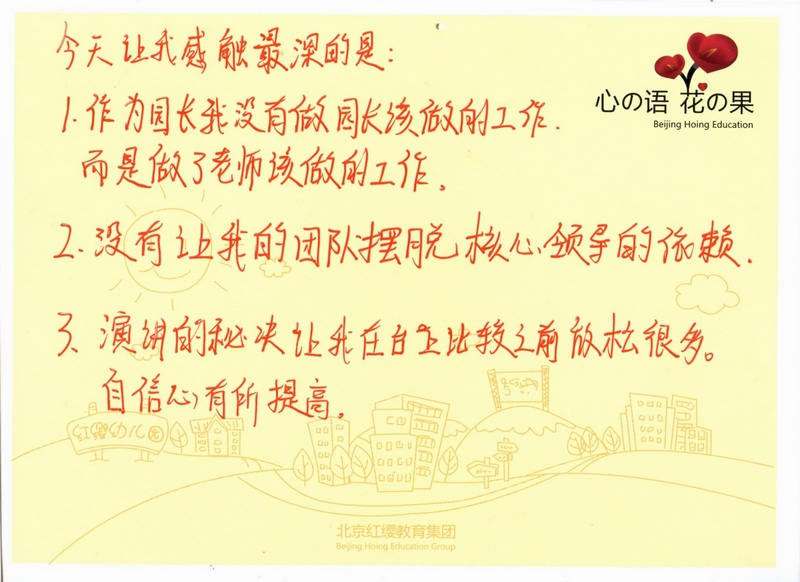 今天让我感触最深的是：
心の语 花の果
Beijing Hoing Education
1.作为园长我没有做园长该做的工作.
而是做了老师该做的工作。
2.没有让我的团队摆脱核心领导的依赖.
3、演讲的秘决让我在台上比较之前放松很多。
自信心有所提高。
红缨幼儿园
北京红缨教育集团
Beijing Hoing Education Group